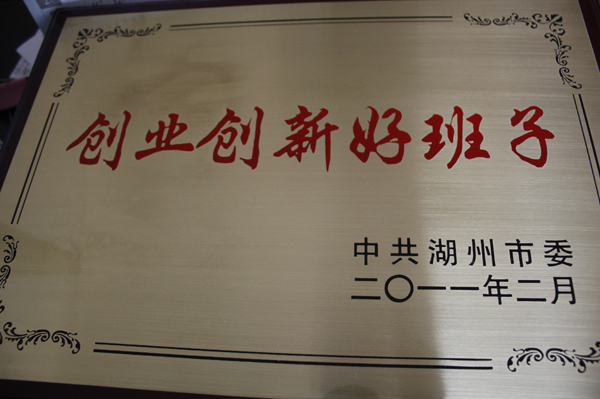 创业创新好班子
中共湖州市委
二〇一一年二月